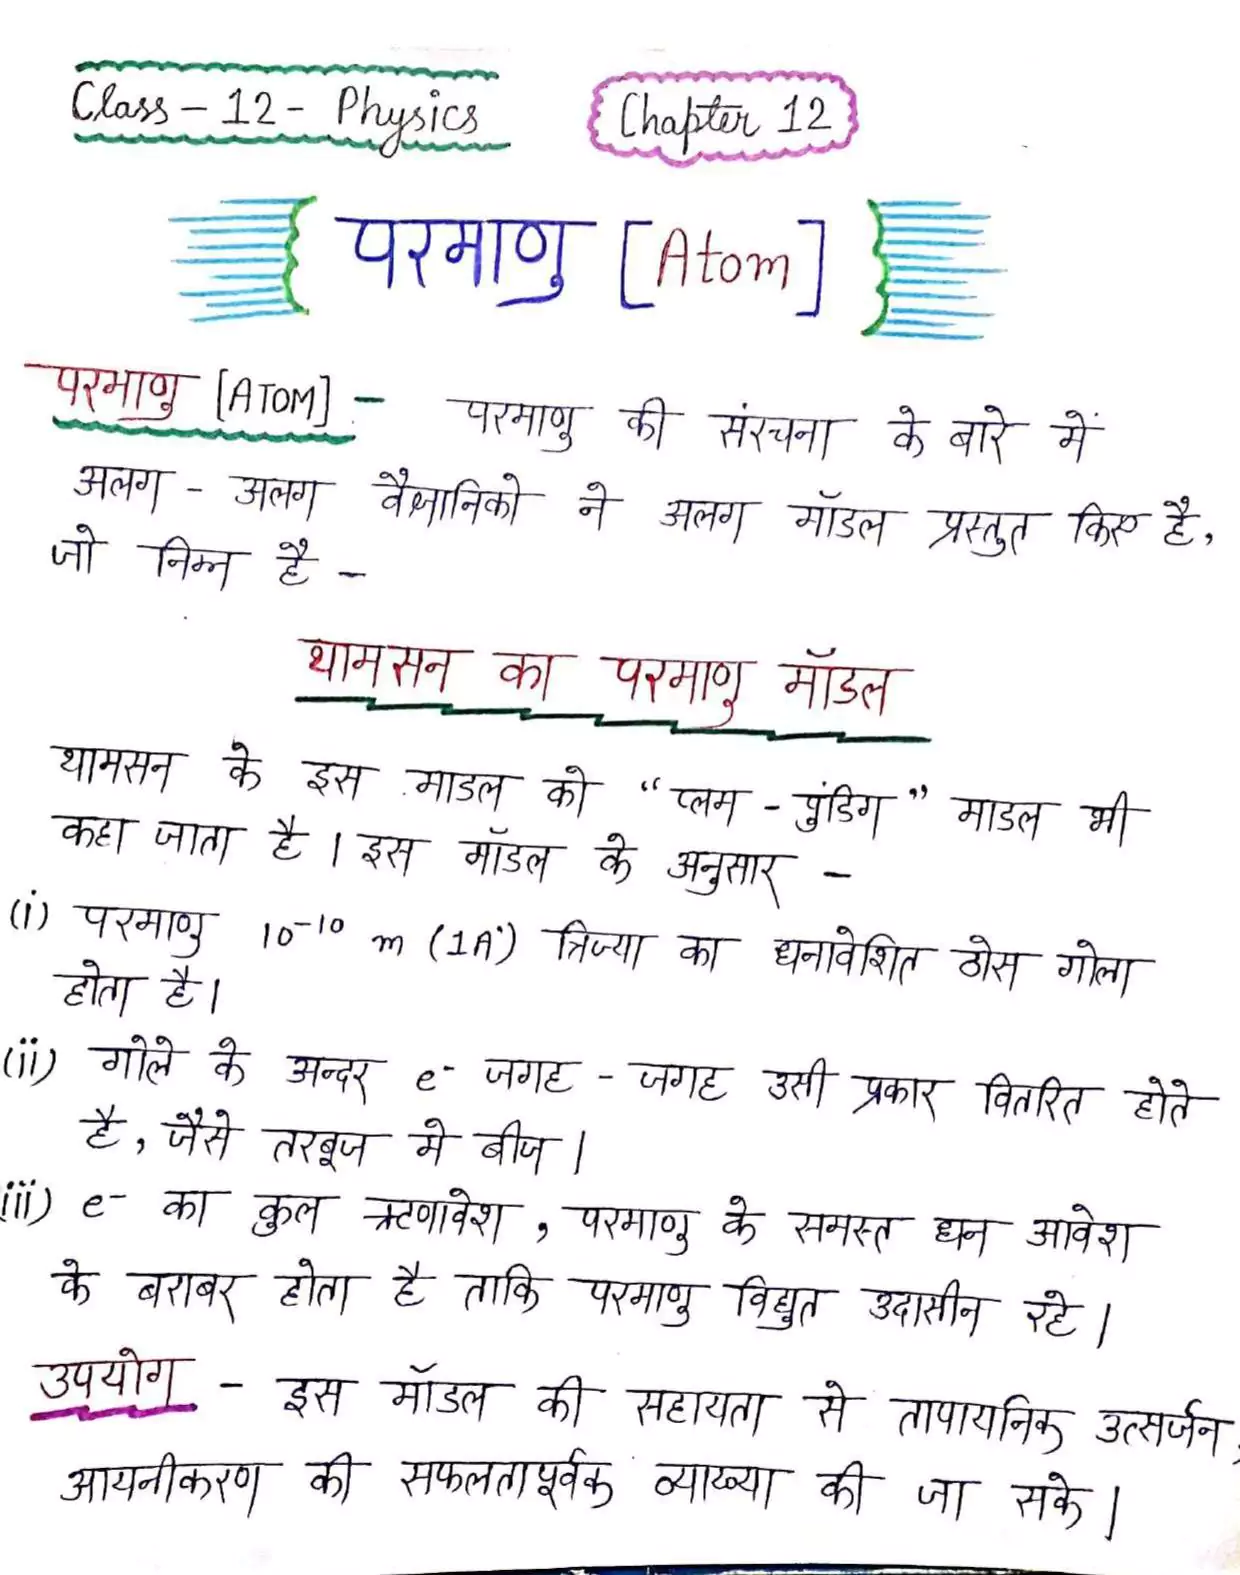 Class - 12 - Physics
Chapter 12
परमाणु [Atom]
परमाणु [ATOM] - परमाणु की संरचना के बारे में
अलग - अलग वैज्ञानिको ने अलग मॉडल प्रस्तुत किए है,
जो निम्न है -
थामसन का परमाणु मॉडल
थामसन के इस माडल को “प्लम - पुंडिग” माडल भी
कहा जाता है । इस मॉडल के अनुसार -
(i) परमाणु 10⁻¹⁰ m (1A°) त्रिज्या का धनावेशित ठोस गोला
होता है ।
(ii) गोले के अन्दर e⁻ जगह - जगह उसी प्रकार वितरित होते
है, जैसे तरबूज मे बीज ।
(iii) e⁻ का कुल ऋणावेश, परमाणु के समस्त धन आवेश
के बराबर होता है ताकि परमाणु विद्युत उदासीन रहे ।
उपयोग - इस मॉडल की सहायता से तापायनिक उत्सर्जन,
आयनीकरण की सफलतापूर्वक व्याख्या की जा सके ।